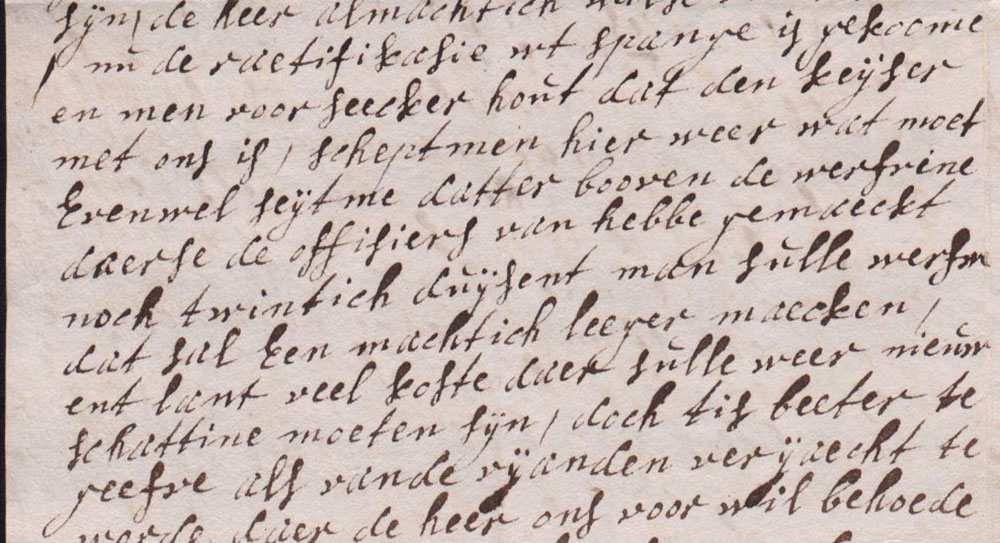 sijn, de heer almachtich
nu de raetifikasie wt spange is gekoome
en men voor seecker hout dat den keyser
met ons is, scheptmen hier weer wat moet
Evenwel seytme datter booven de werfvine
daerse de offisiers van hebbe gemaeckt
noch twintich duysent man sulle werfvn
dat sal Een machtich leeger maecken,
ent lant veel koste daer sulle weer nieuw
schattine moeten sijn, doch tis beeter te
geefve als vande vyanden verjaecht te
worde, daer de heer ons voor wil behoede